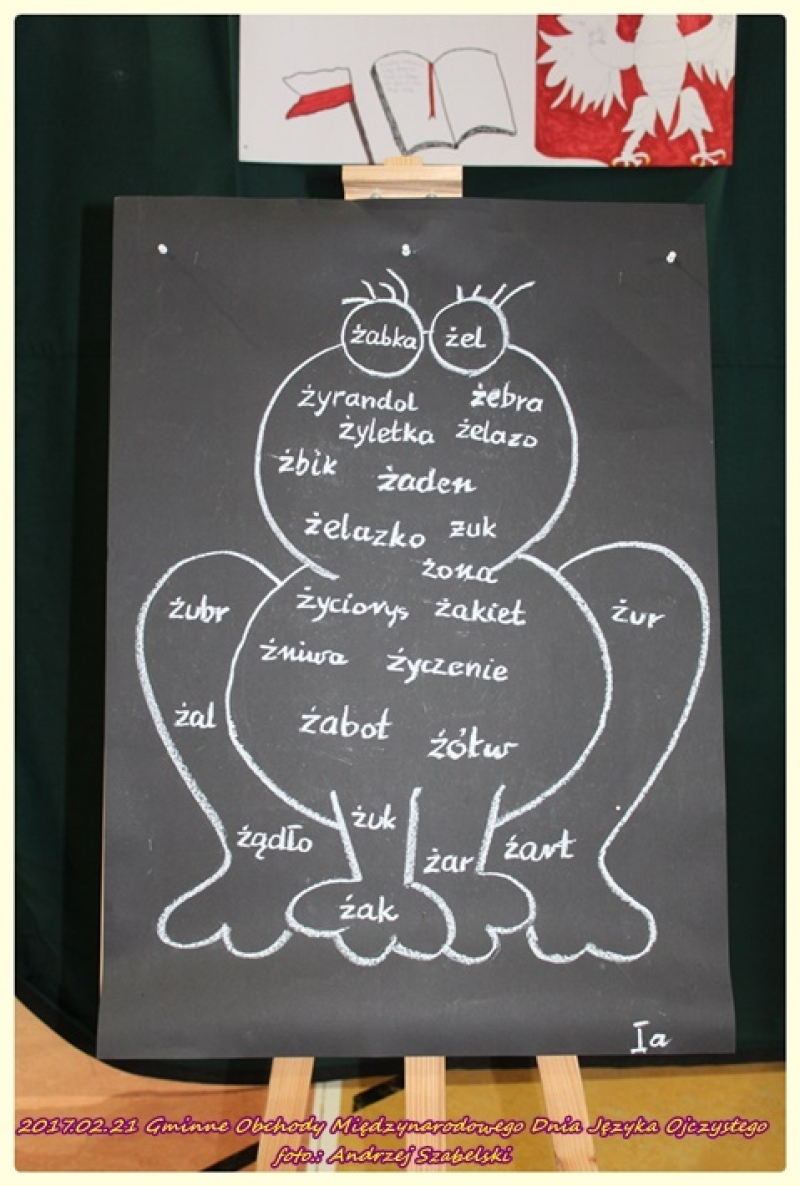 żabka żel
żyrandol żebra
żyletka żelazo
żbik żaden
żelazko żuk
żona
żubr życiorys żakiet żur
żniwa życzenie
żal żabot żółw
żądło żuk żar żart
żak
Ia
2017.02.21 Gminne Obchody Międzynarodowego Dnia Języka Ojczystego
foto.: Andrzej Szabelski